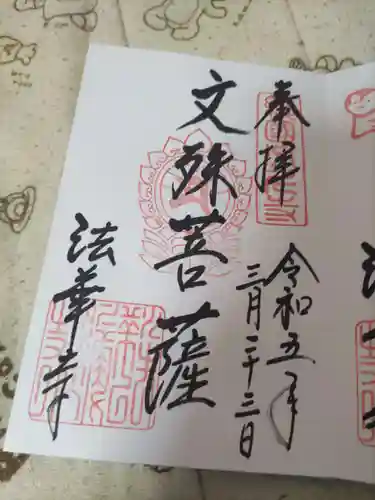 奉拝
令和五年
三月二十三日
文殊菩薩
法華寺